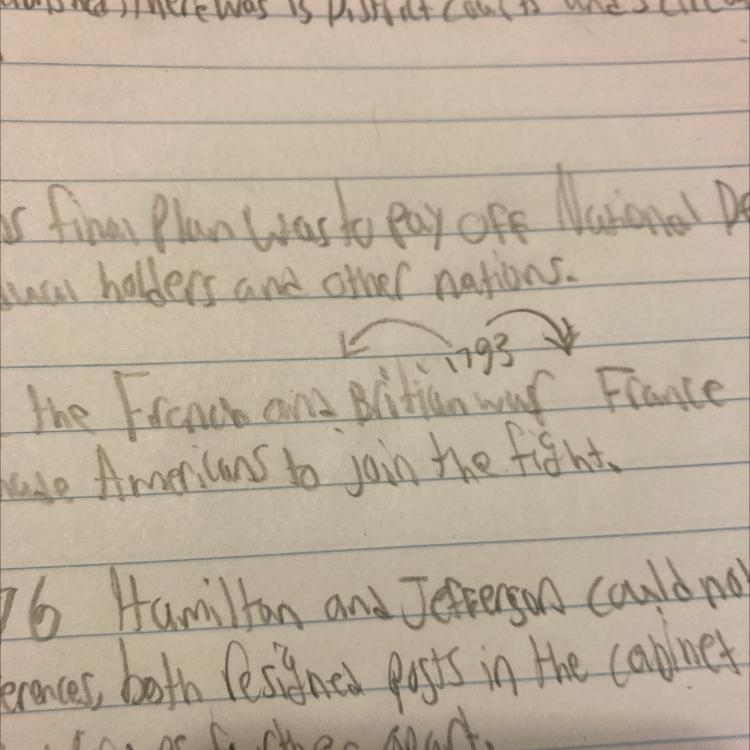 there was is District courts and
final Plan was to pay off National
holders and other nations.
1793
the French and Britian war France
Americans to join the fight.
76 Hamilton and Jefferson could not
erences, both resigned posts in the cabinet
further apart.